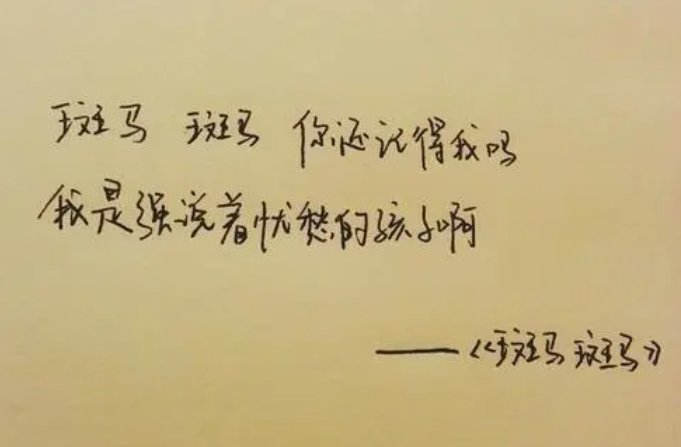 斑马 斑马 你还记得我吗
我是强说着忧愁的孩子啊
——《斑马斑马》